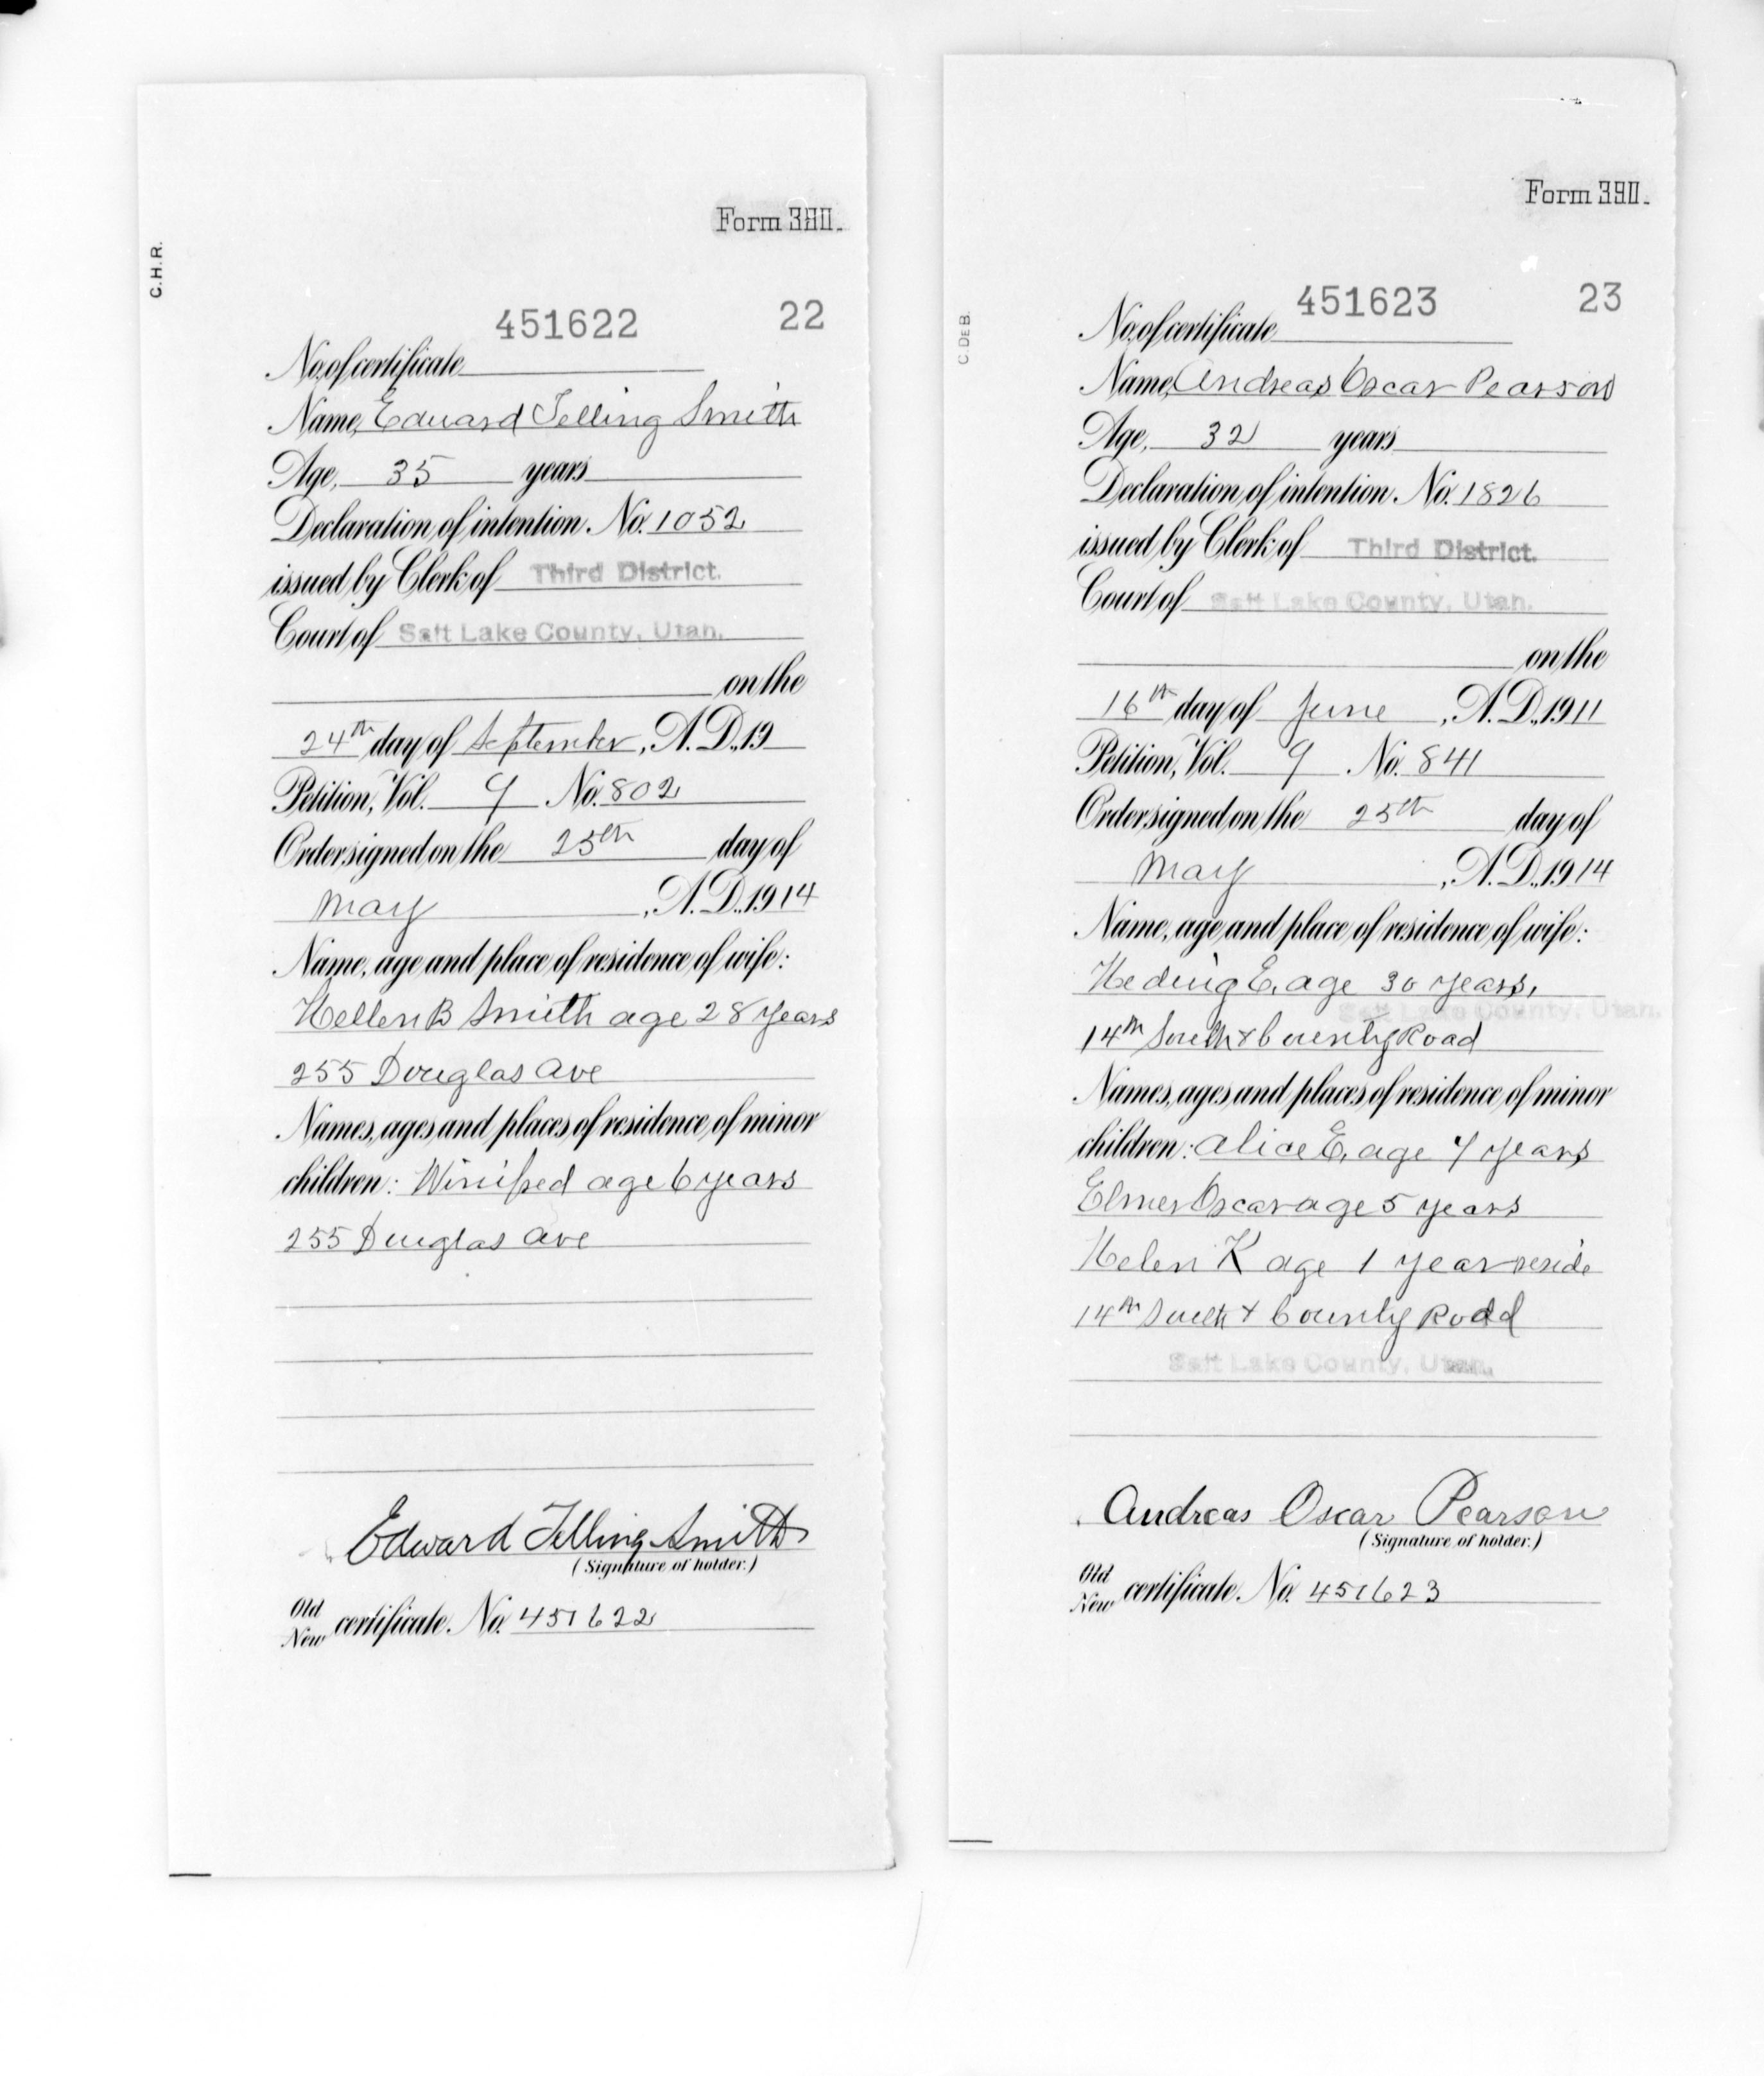 Form 390.
C.H.R.
451622 22
No. of certificate
Name, Edward Telling Smith
Age, 35 years
Declaration of intention No. 1052
issued by Clerk of Third District.
Court of Salt Lake County, Utah.
on the
24th day of September, A.D., 19
Petition, Vol. 9 No. 802
Order signed on the 25th day of
May, A.D., 1914
Name, age and place of residence of wife:
Hellen B Smith age 28 years
255 Douglas Ave
Names, ages and places of residence of minor
children: Winifred age 6 years
255 Douglas Ave
Edward Telling Smith
(Signature of holder.)
Old
New certificate. No. 451622
Form 390.
C.DEB.
451623 23
No. of certificate
Name, Andreas Oscar Pearson
Age, 32 years
Declaration of intention No. 1826
issued by Clerk of Third District.
Court of Salt Lake County, Utah.
on the
16th day of June, A.D., 1911
Petition, Vol. 9 No. 841
Order signed on the 25th day of
May, A.D., 1914
Name, age and place of residence of wife:
Hedvig E, age 30 years,
Salt Lake County, Utah.
14th South & County Road
Names, ages and places of residence of minor
children: Alice E, age 7 years
Elmer Oscar age 5 years
Helen K age 1 year reside
14th South & County Road
Salt Lake County, Utah.
Andreas Oscar Pearson
(Signature of holder.)
Old
New certificate. No. 451623